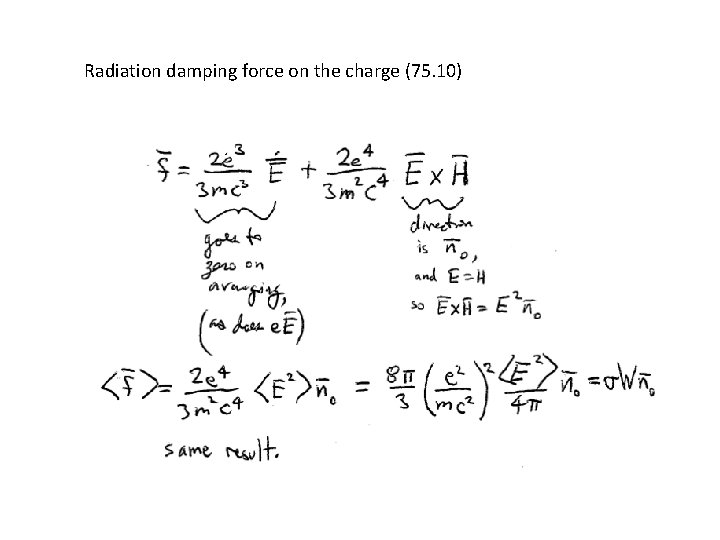 Radiation damping force on the charge (75.10)
f̄ = 2e³/3mc³ Ē̇ + 2e⁴/3m²c⁴ Ē × H̄
goes to zero on averaging, (as does eĒ)
direction is n̄₀, and E=H so Ē×H̄ = E² n̄₀
<f̄> = 2e⁴/3m²c⁴ <E²> n̄₀ = 8π/3 (e²/mc²)² <E²>/4π n̄₀ = σW n̄₀
same result.